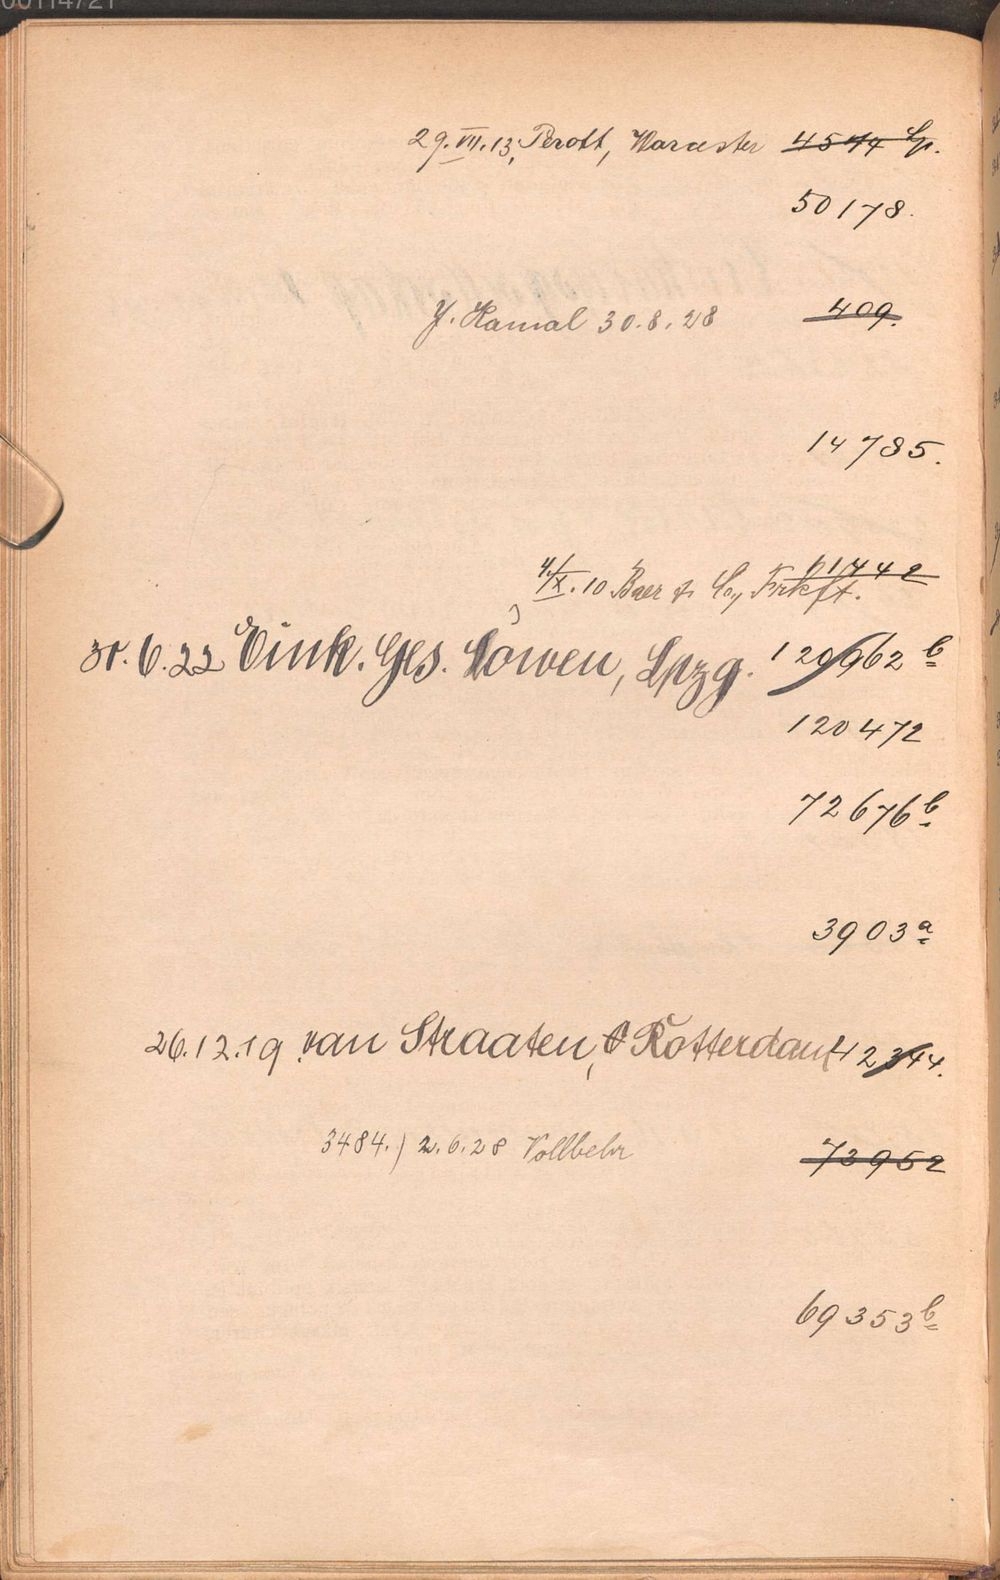 29.VII.13, Perott, Worcester 4544 Lp.
50178.
Y. Kamal 30.8.28 409.
14785.
4/X.10 Baer & Co, Frkft. 71442
30.6.22 Eink. Ges. Löwen, Lpzg. 120962 b
120472
72676 b
3903 a
26.12.19 van Straaten, Rotterdam 42344.
3484.) 2.6.28 Vollbehr 73952
69353 b